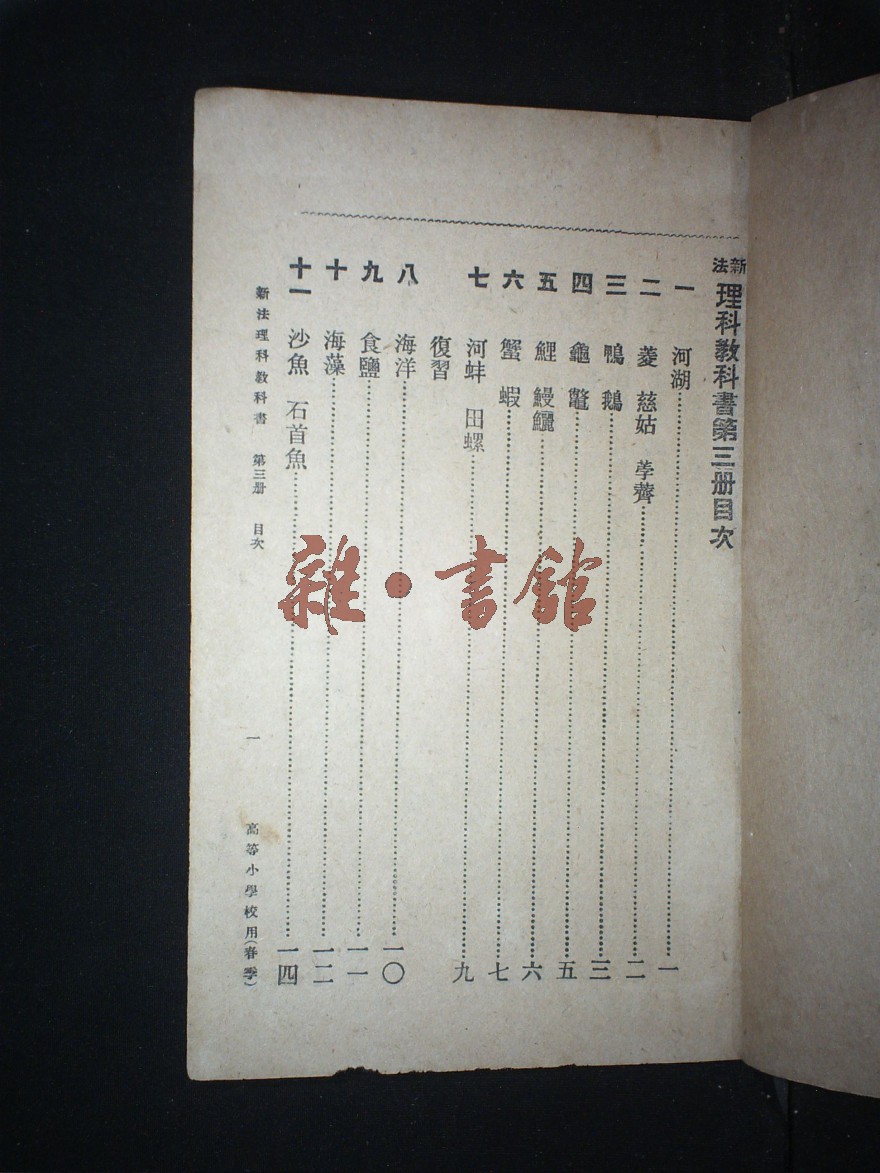 新法理科教科書第三册目次
一 河湖 一
二 菱 慈姑 荸薺 二
三 鴨 鵝 三
四 龜 鼈 五
五 鯉 鰻鱺 六
六 蟹 蝦 七
七 河蚌 田螺 九
復習
八 海洋 一〇
九 食鹽 一一
十 海藻 一二
十一 沙魚 石首魚 一四
新法理科教科書 第三册 目次 一 高等小學校用(春季)
雜·書館